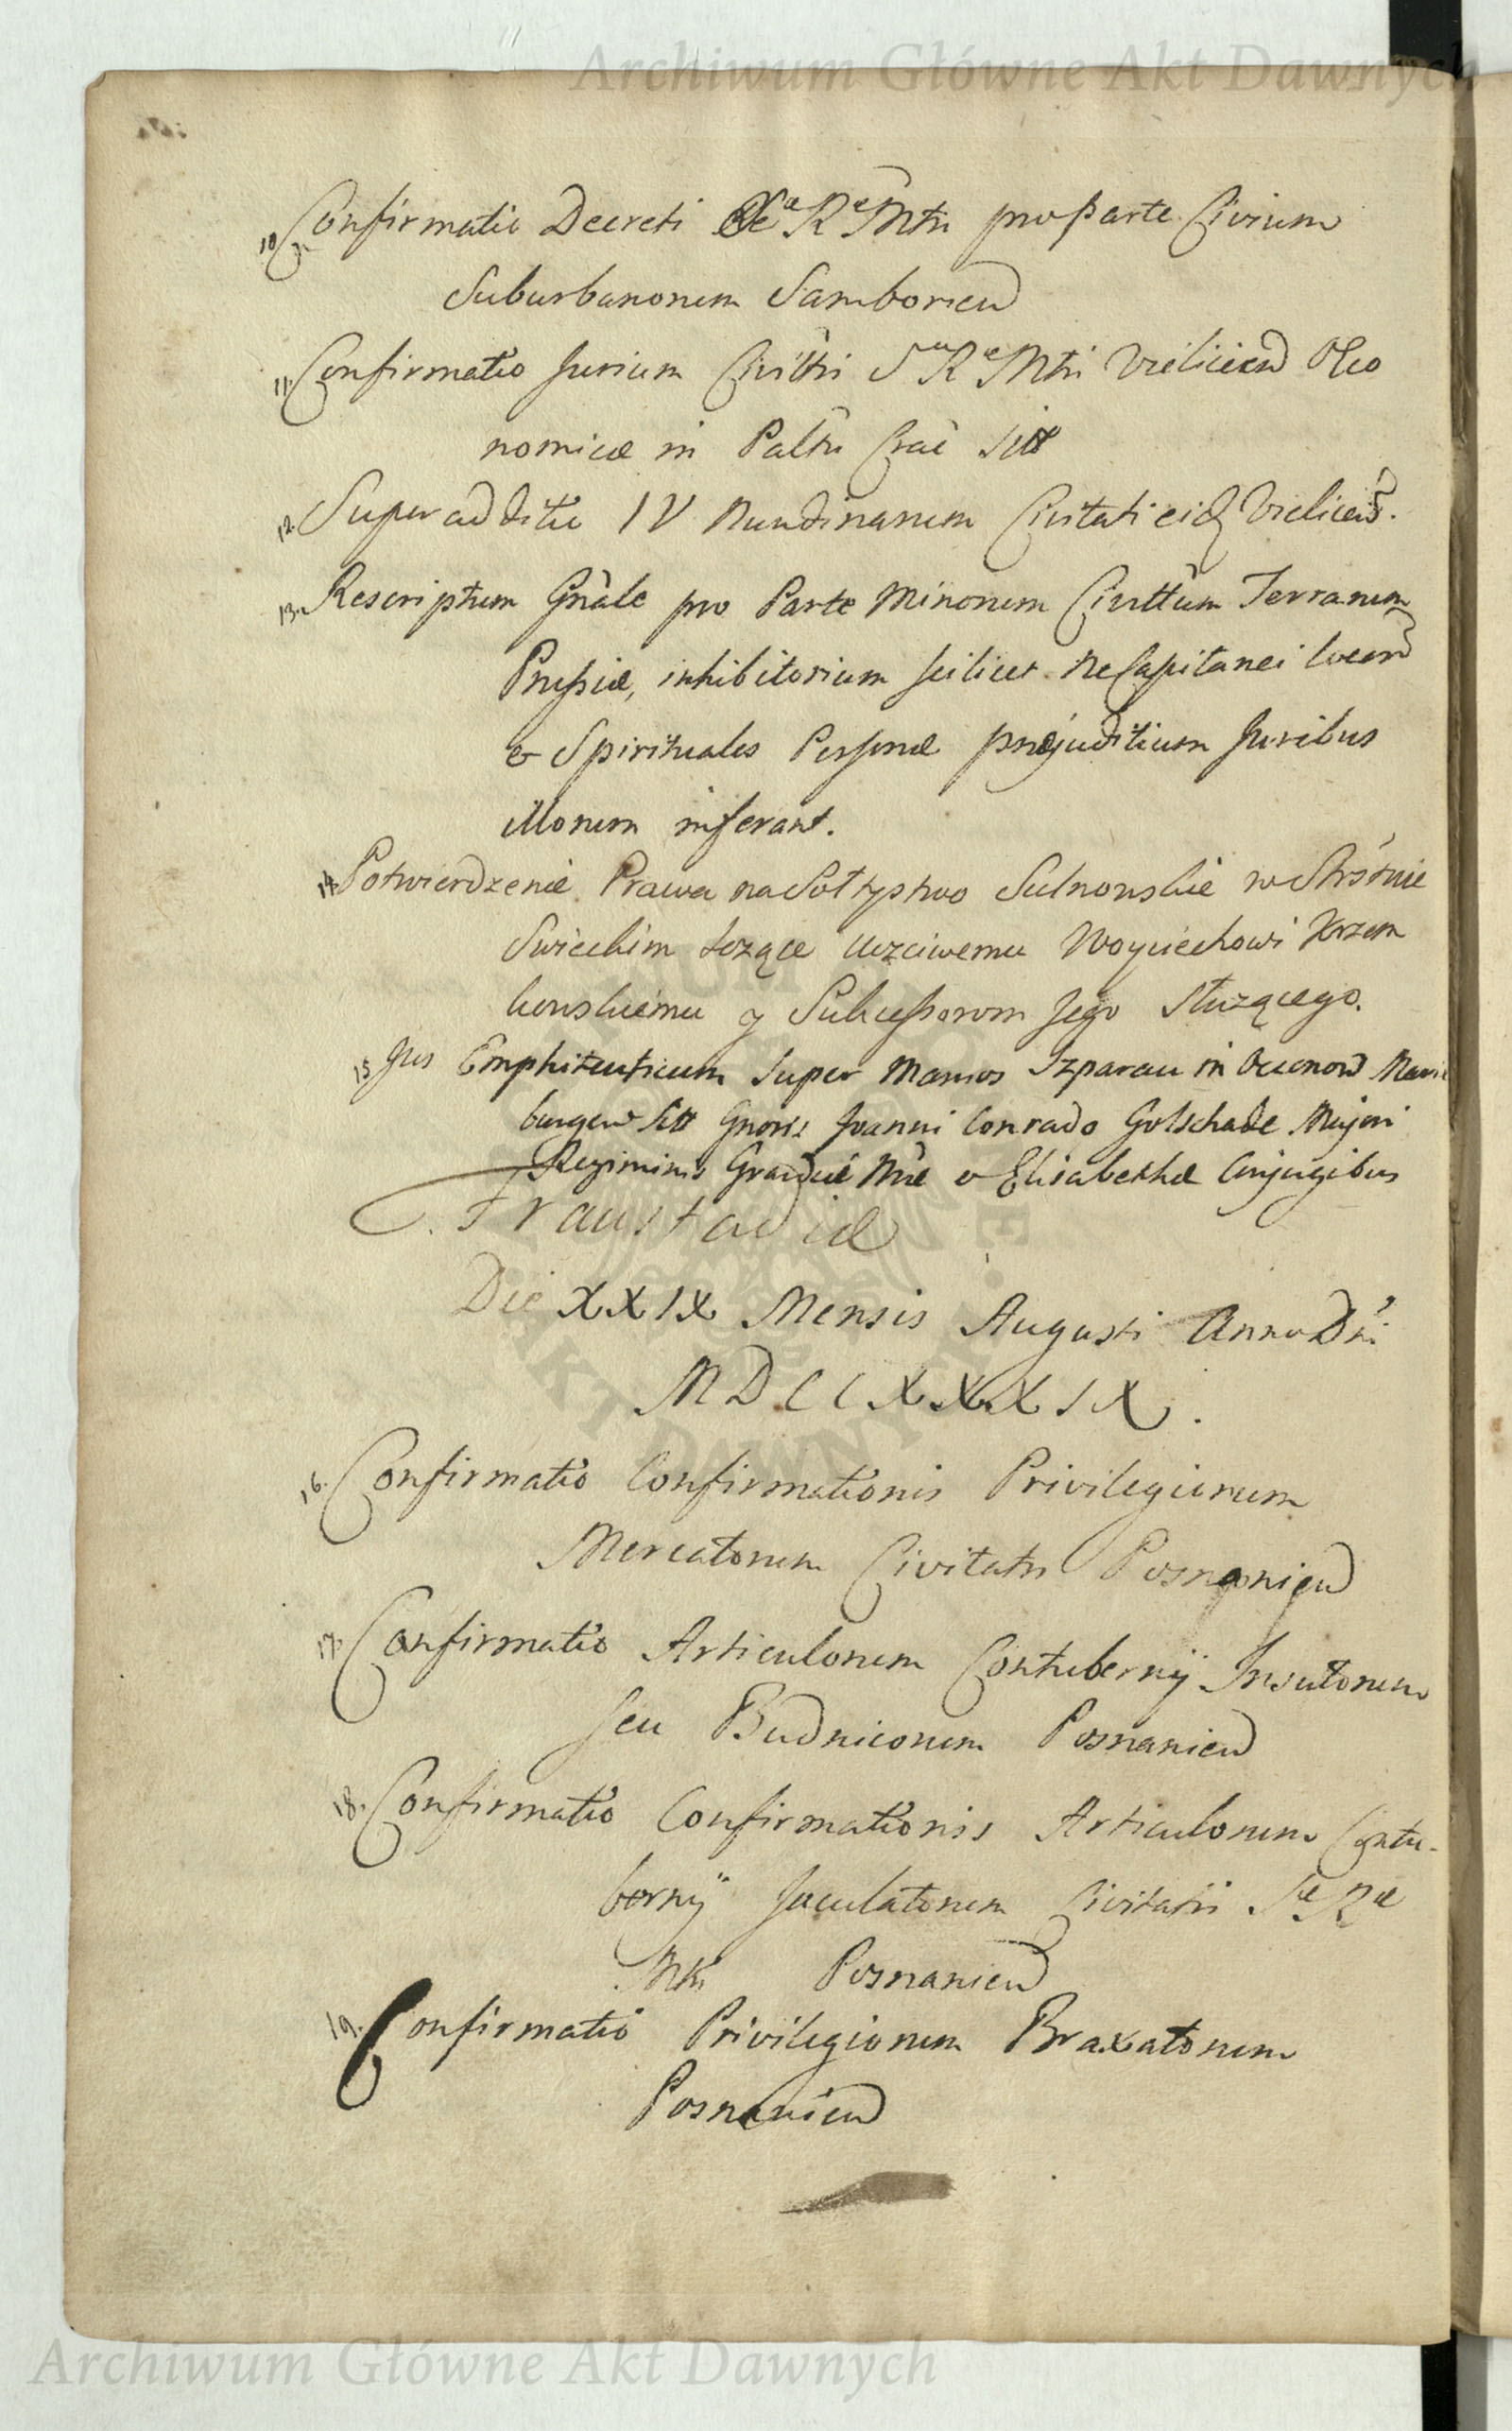 Archiwum Główne Akt Dawnych
10. Confirmatio Decreti Sae Rae Mttis pro parte Civium
Suburbanorum Samborien
11. Confirmatio Jurium Civittis Sae Rae Mttis Vieliciens Oeco
nomiæ in Palttu Crac sitt
12. Superadditio IV Nundinarum Civitati eidem Vieliciens.
13. Rescriptum Gnale pro Parte Minorum Civittum Terrarum
Prussiæ, inhibitorium scilicet ne Capitanei locorum
& Spirituales Personæ præjuditium Juribus
illorum inferant.
14. Potwierdzenie Prawa na Sołtystwo Sulnowskie w Stróstwie
Swieckim leżące uczciwemu Woyciechowi Krzem
kowskiemu y Sukcessorom Jego służącego.
15. Jus Emphiteuticum super Mansos Szparau in Oeconom Marie
burgen sitt Gnoris Joanni Conrado Gotschade Majori
Regiminis Grandiæ Nræ & Elisabethæ Conjugibus
Fraustadiæ
Die XXIX Mensis Augusti Anno Dni
MDCCXXXIX.
16. Confirmatio Confirmationis Privilegiorum
Mercatorum Civitatis Posnanien
17. Confirmatio Articulorum Contubernij Insutorum
seu Budnicorum Posnanien
18. Confirmatio Confirmationis Articulorum Contu-
bernij Jaculatorum Civitatis Sæ Ræ
Mttis Posnanien
19. Confirmatio Privilegiorum Braxatorum
Posnanien
Archiwum Główne Akt Dawnych